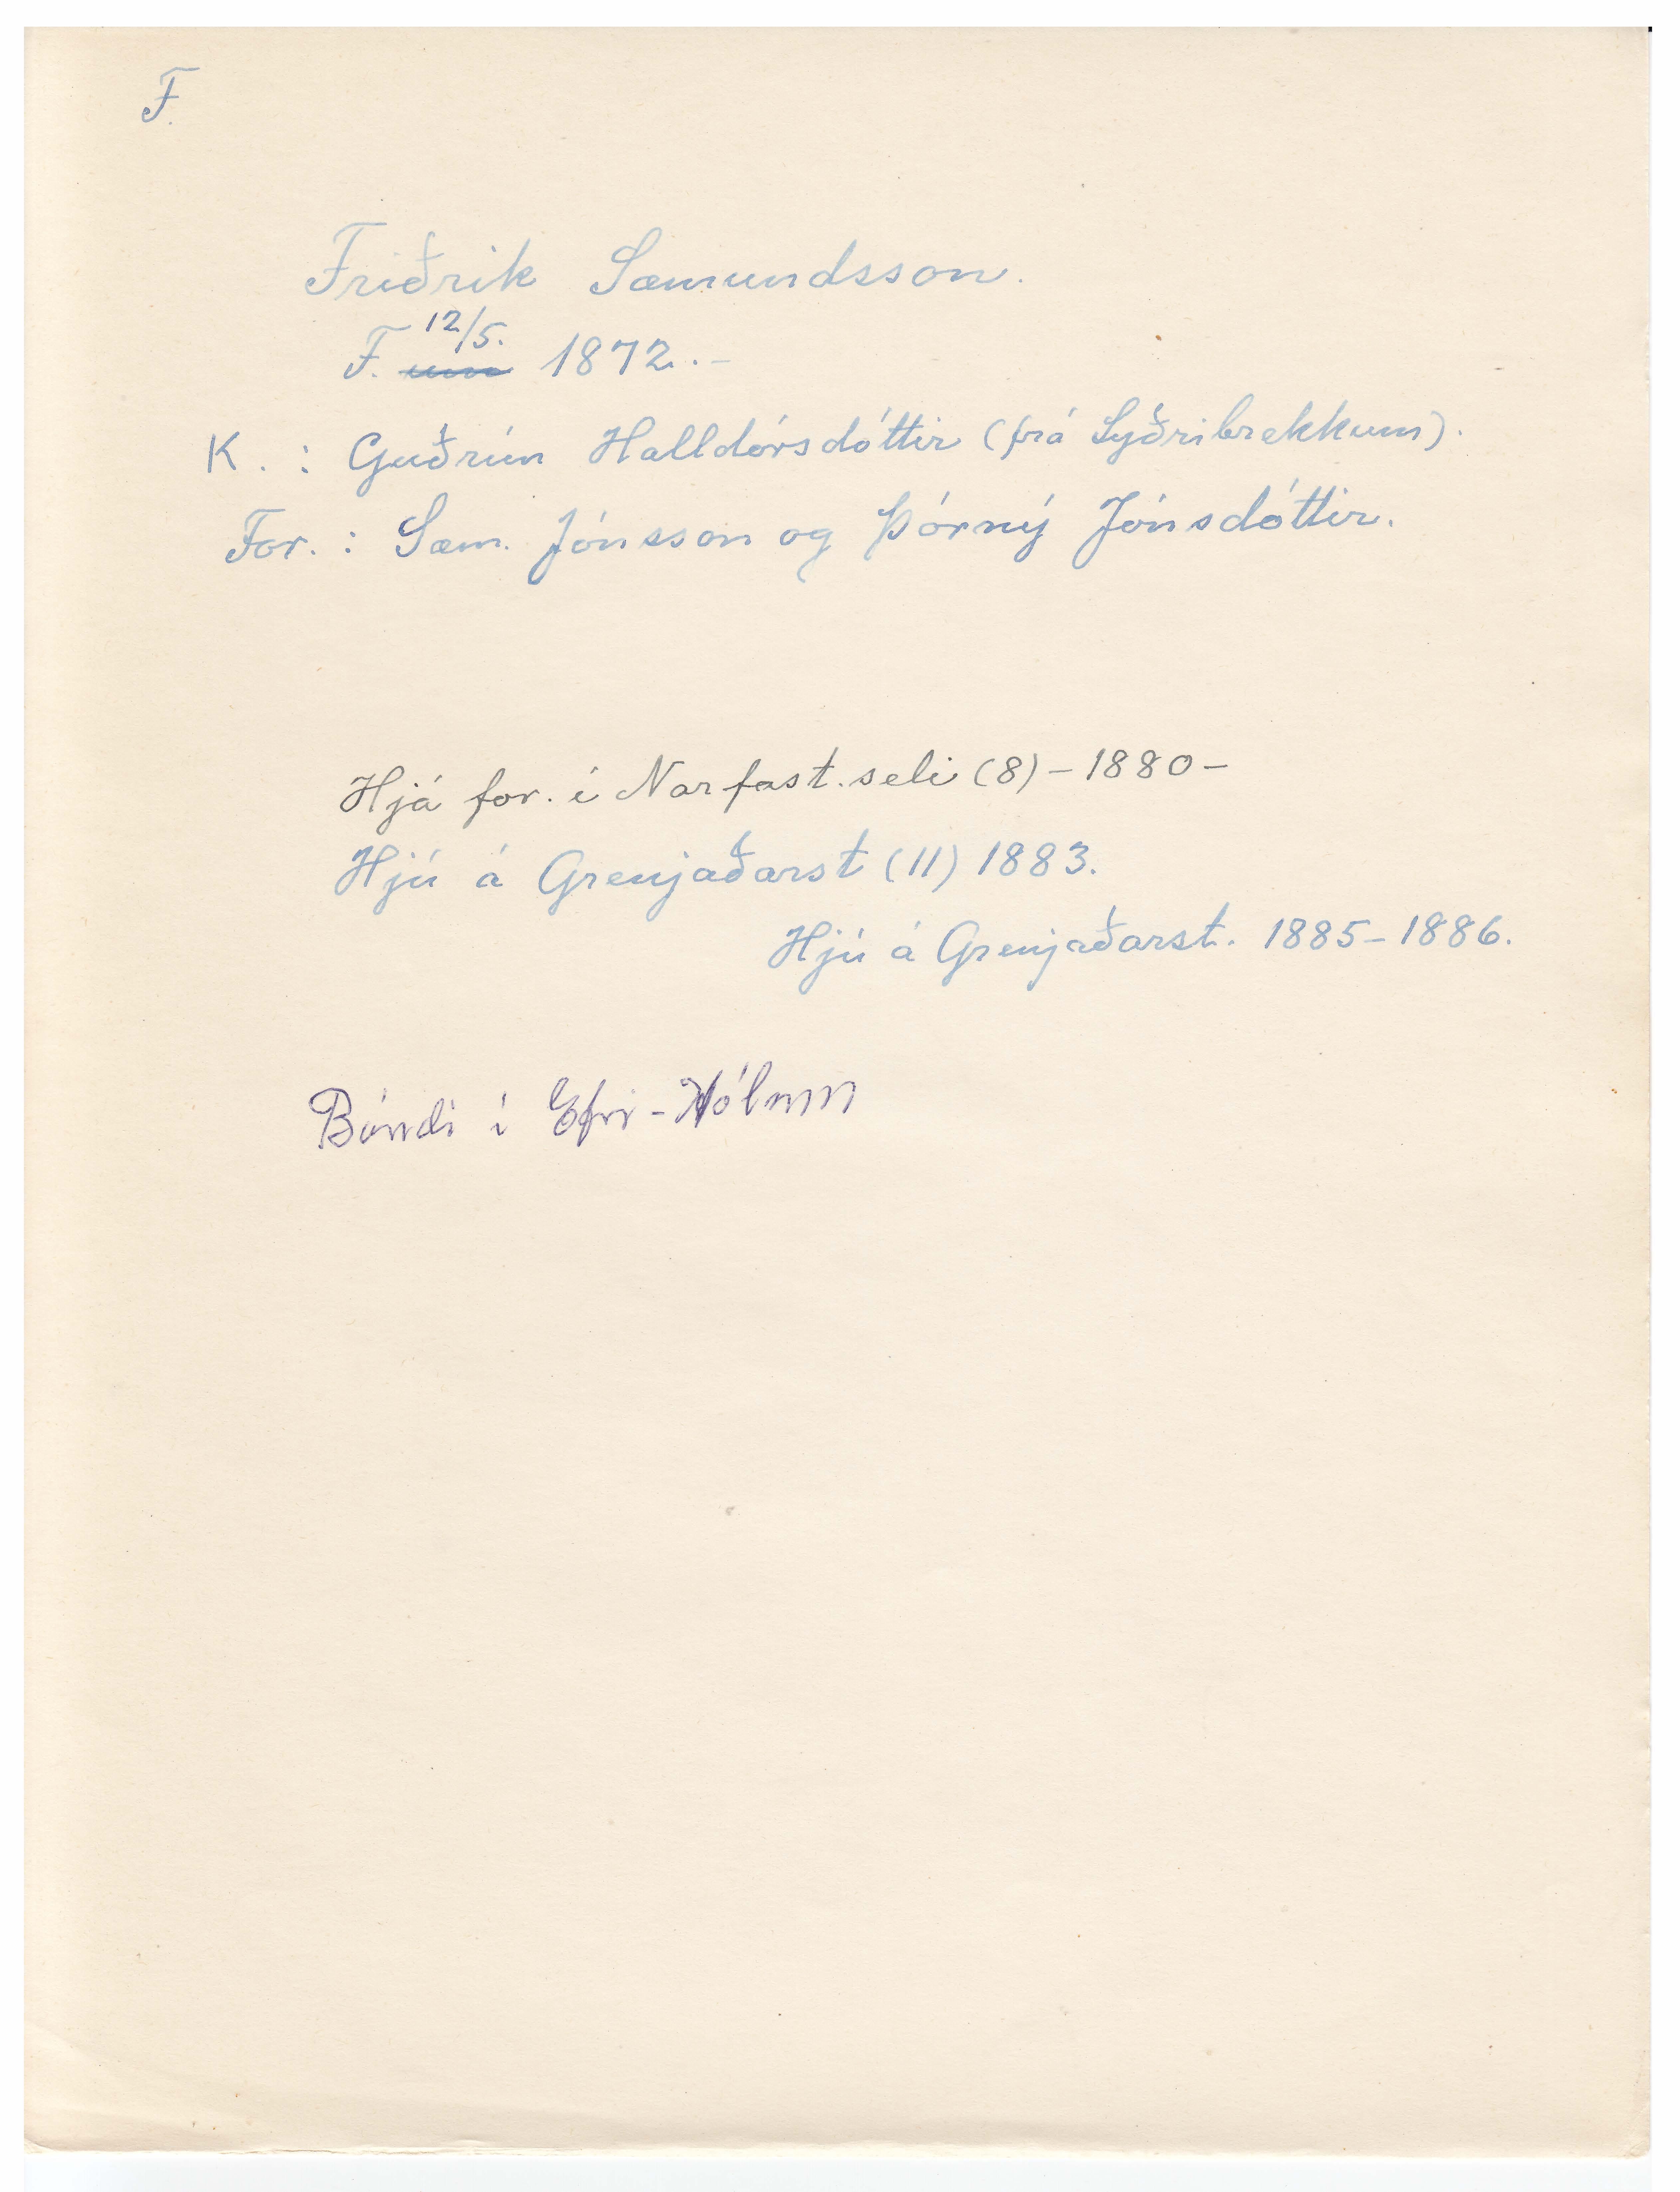 F.
Friðrik Sæmundsson.
12/5.
F. um 1872.-
K. : Guðrún Halldórsdóttir (frá Syðribrekkum).
For. : Sæm. Jónsson og Þórný Jónsdóttir.
Hjá for. í Narfast.seli (8) - 1880 -
Hjú á Grenjaðarst (11) 1883.
Hjú á Grenjaðarst. 1885 - 1886.
Bóndi í Efri-Hólum